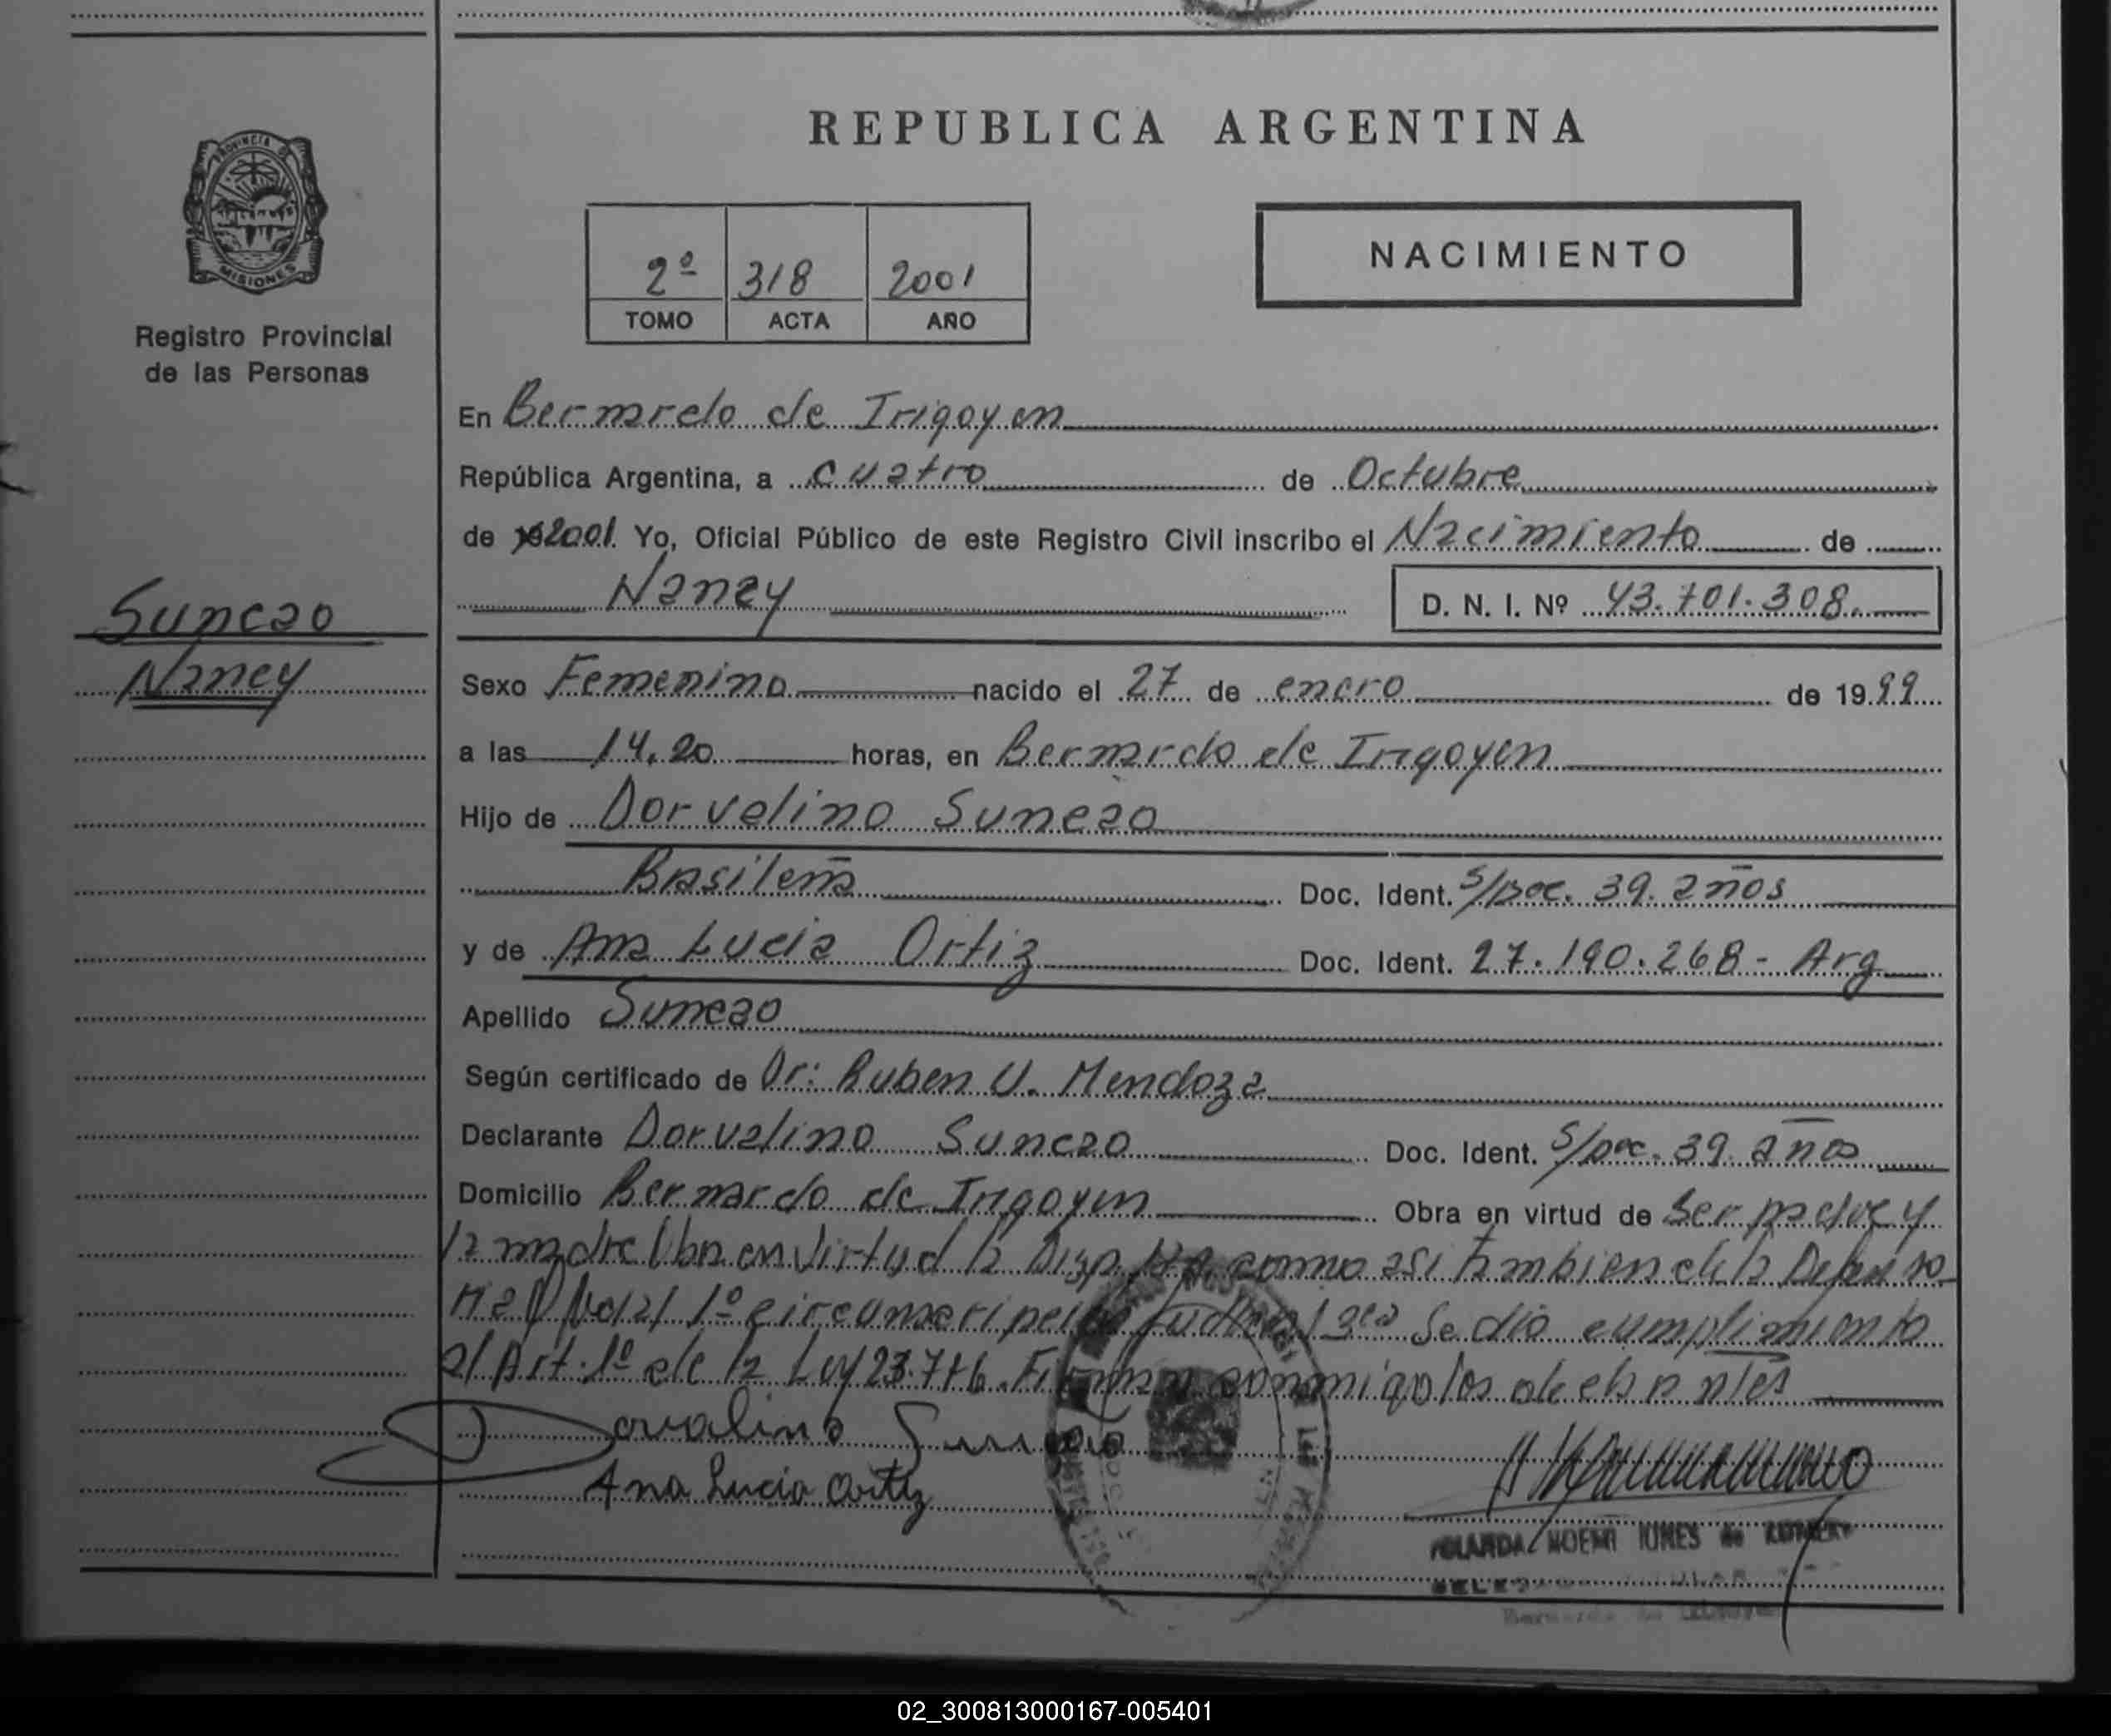 REPUBLICA ARGENTINA
PROVINCIA DE
MISIONES
Registro Provincial
de las Personas
2º 318 2001
TOMO ACTA AÑO
NACIMIENTO
En Bernardo de Irigoyen
República Argentina, a cuatro de Octubre
de 2001. Yo, Oficial Público de este Registro Civil inscribo el Nacimiento de
Nancy D. N. I. Nº 43.701.308.
Suneao
Nancy
Sexo Femenino nacido el 27 de enero de 1999
a las 14.20 horas, en Bernardo de Irigoyen
Hijo de Dorvalino Suneao
Brasileña Doc. Ident. S/Doc. 39. años
y de Ana Lucia Ortiz Doc. Ident. 27.190.268 - Arg
Apellido Suneao
Según certificado de Dr: Ruben U. Mendoza
Declarante Dorvalino Suneao Doc. Ident. S/Doc. 39. años
Domicilio Bernardo de Irigoyen Obra en virtud de Ser padre y
la madre Obra en Virtud la Disp. como asi tambien de la
1º circunscripción Se dio cumplimiento
al Art. 1º de la Ley 23.776. Firman conmigo los
Dorvalino
Ana Lucia Ortiz
NOEMI de
02_300813000167-005401